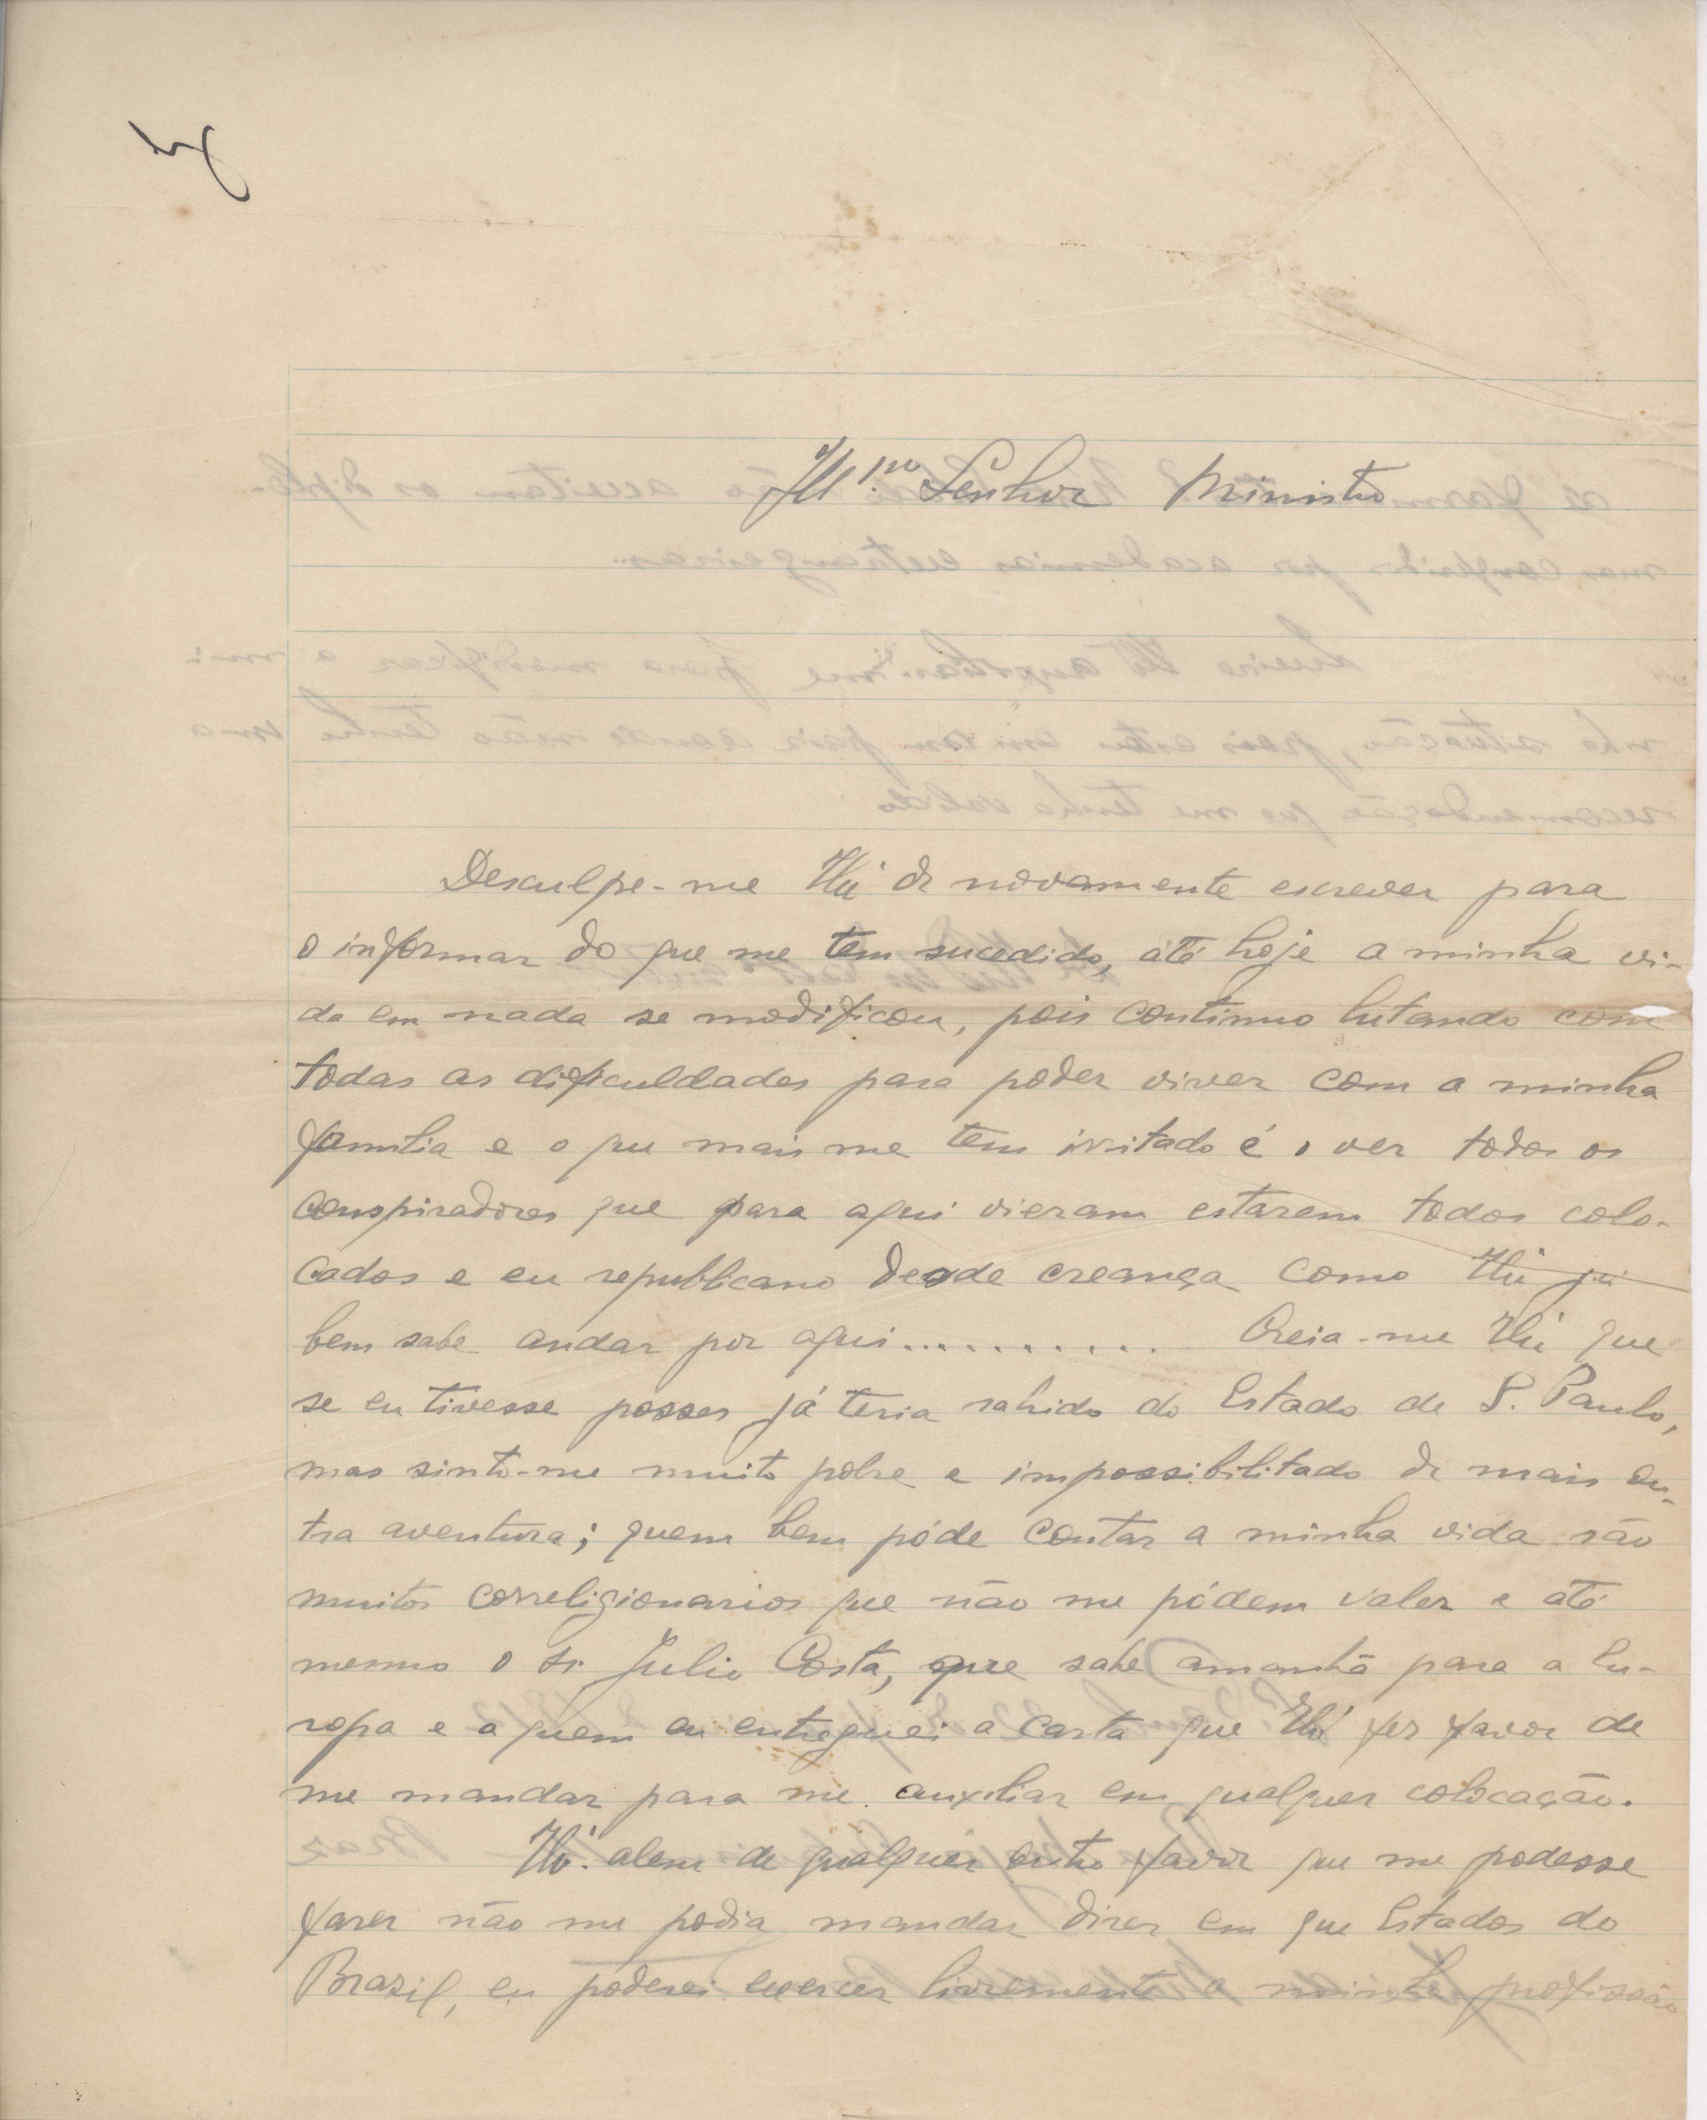 Ill.mo Senhor Ministro
Desculpe-me V.ª de novamente escrever para
o informar do que me tem sucedido, até hoje a minha vi-
da em nada se modificou, pois continuo lutando com
todas as dificuldades para poder viver com a minha
familia e o que mais me tem irritado é o ver todos os
conspiradores que para aqui vieram estarem todos colo-
cados e eu republicano desde creança como já
bem sabe andar por aqui........... Creia-me que
se eu tivesse posses já teria sahido do Estado de S. Paulo,
mas sinto-me muito pobre e impossibilitado de mais ou-
tra aventura; quem bem póde contar a minha vida são
muitos correligionarios que não me pódem valer e até
mesmo o Sr. Julio Costa, que sahe amanhã para a Eu-
ropa e a quem eu entreguei a carta que fez favor de
me mandar para me auxiliar em qualquer colocação.
alem de qualquer outro favor que me podesse
fazer não me podia mandar dizer em que Estados do
Brazil, eu poderei exercer livremente a minha profissão